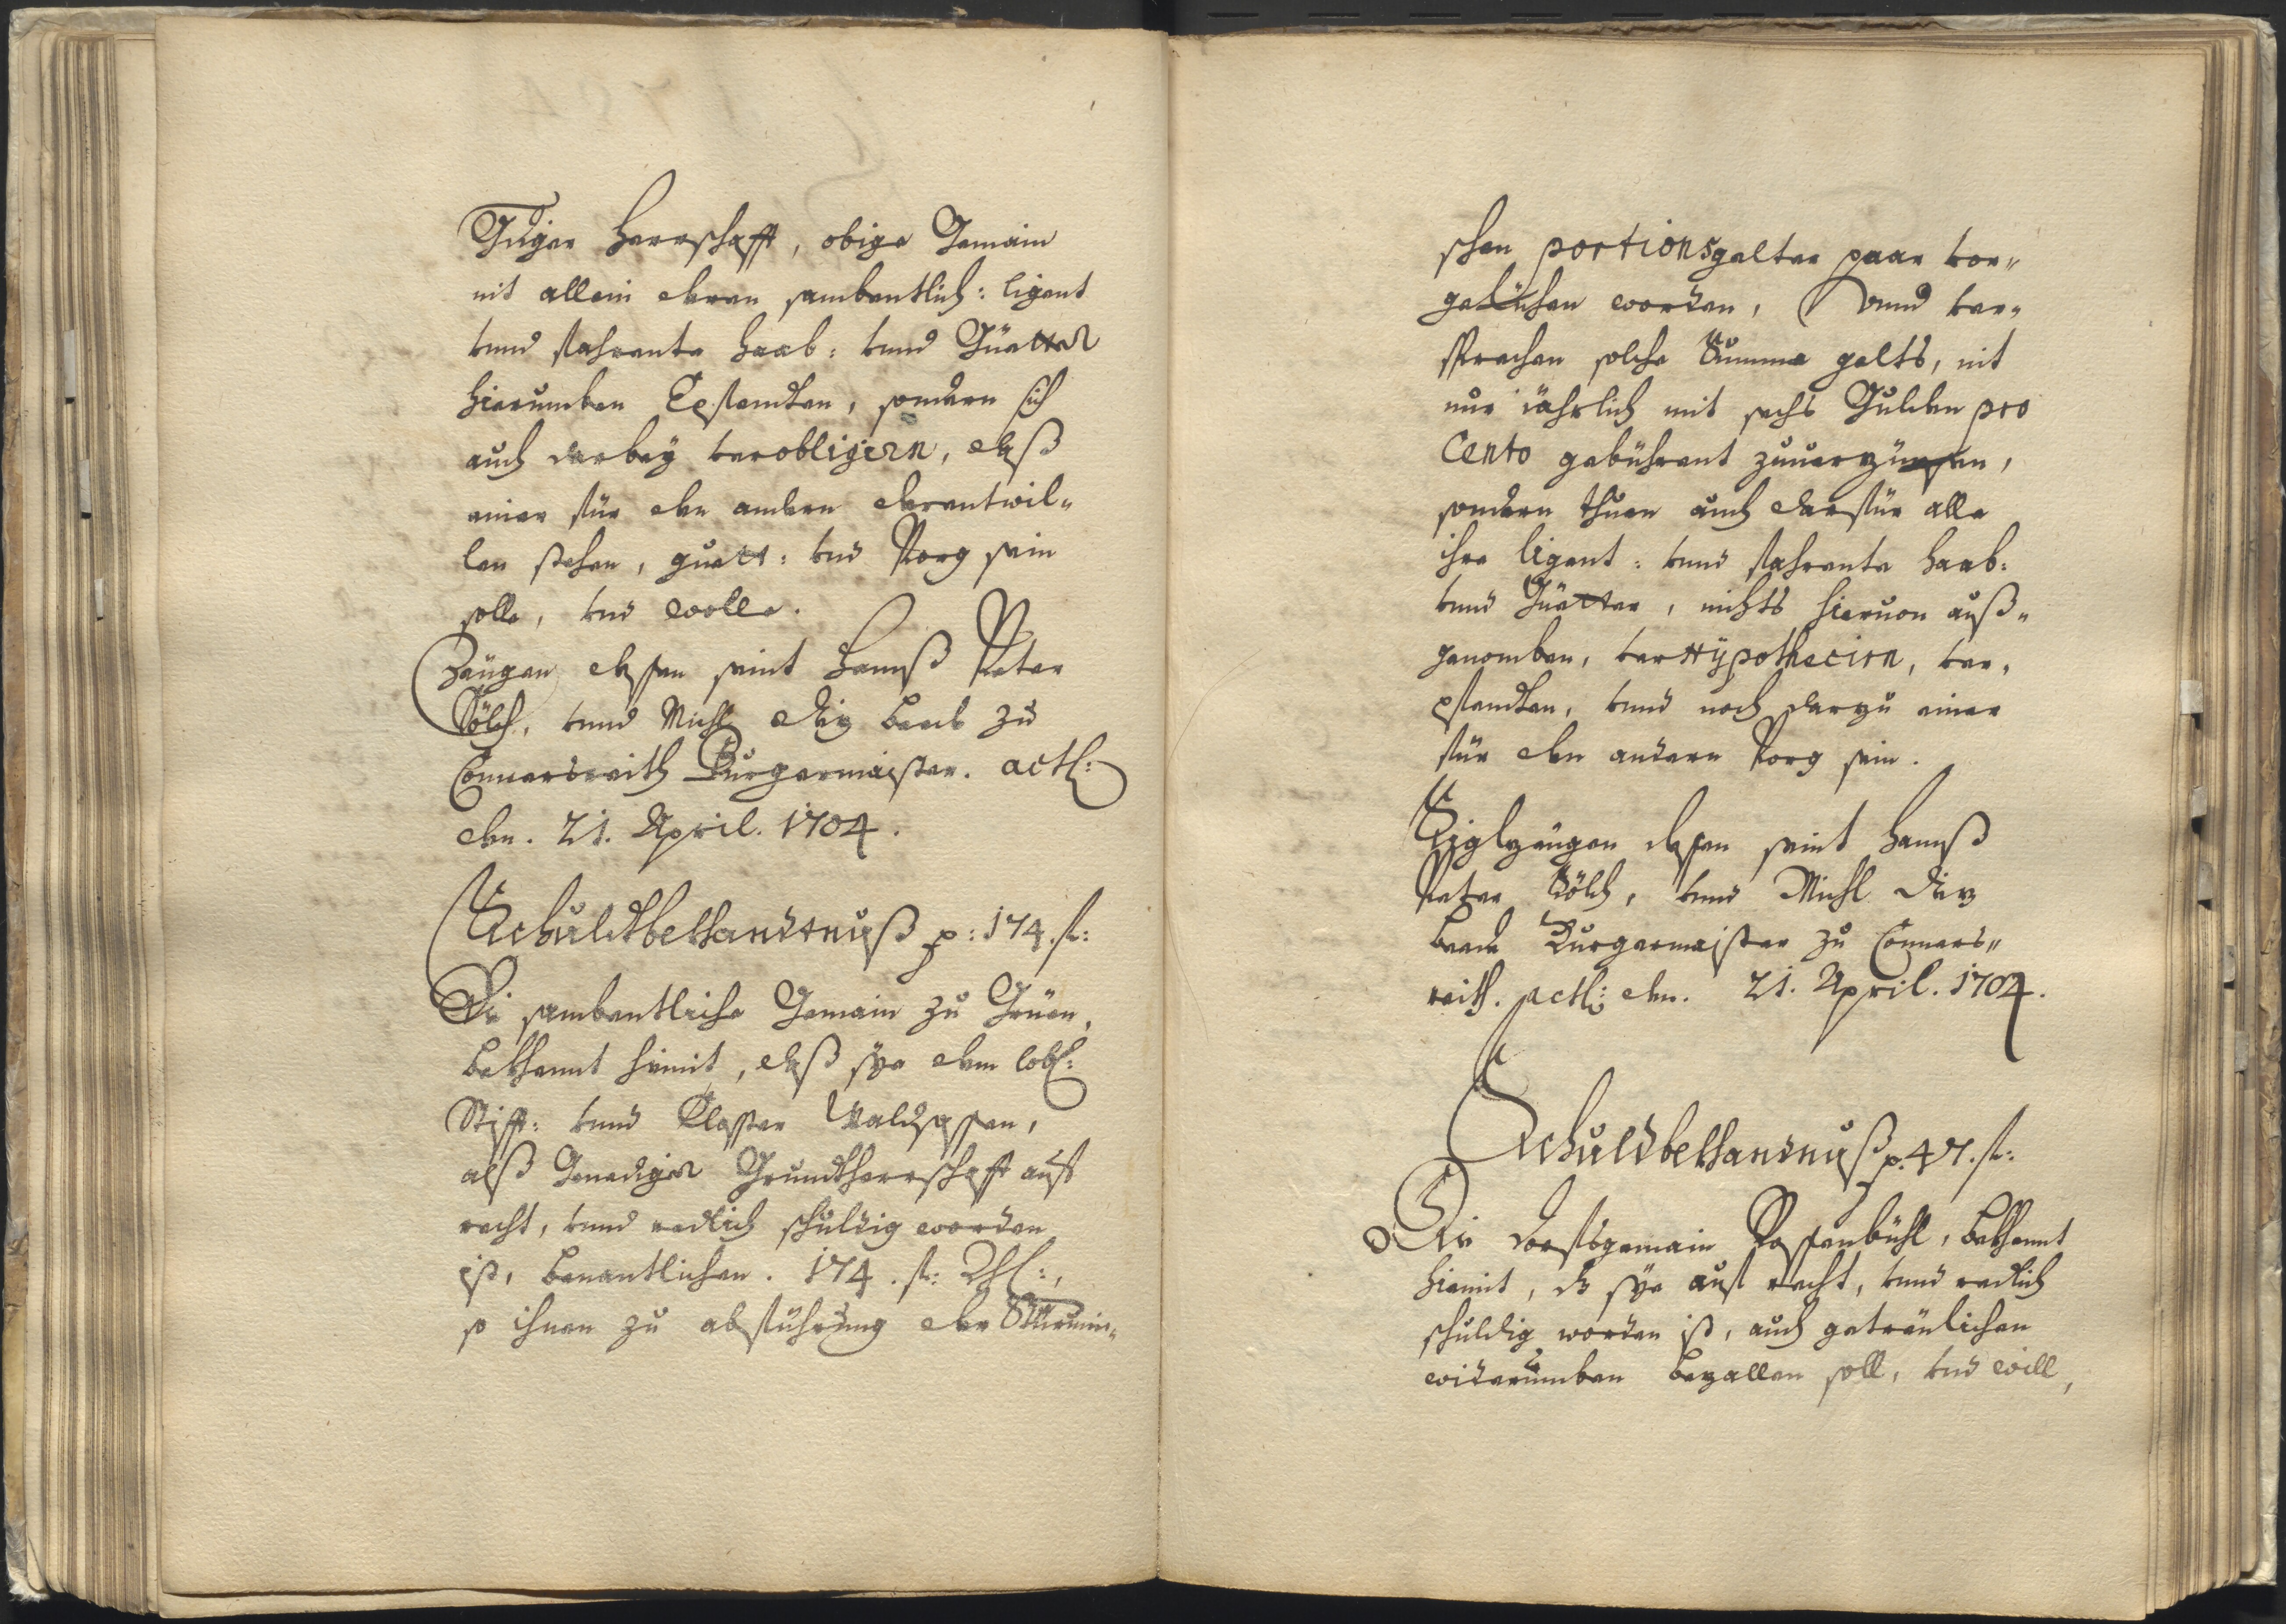 Gdiger Herrschafft, obige Gemain
nit allein deren sambentlich: ligent
vnnd fahrente Haab: vnnd Güetter
hierumben Epfendten, sondern sich
auch darbey verobligirn, daß
einer für den andern derentwil„
len stehen, guett: vnd Porg sein
solle, vnd wolle.
Zeügen dessen seint Hannß Peter
Sölch, vnnd Michl Diz beeds zu
Connersreith Burgermaister. actl:
den. 21. April. 1704.
Schuldtbekhandtnuß p: 174. fl:
Die sambentliche Gemain zu Grüen,
bekhennt hiemit, daß sye dem lobl:
Stifft: vnnd Closter Waldsassen,
alß Genediger Grundtherrschafft auff
recht, vnnd redlich schuldig worden
ist, benantlichen. 174. fl: Rhl:,
so ihnen zu abführung der
schen portionsgelter paar vor„
gelichen worden, Vnnd ver„
sprechen solche Summa gelts, nit
nur jährlich mit sechs Gulden pro
Cento gebührent zuuerzünsen,
sondern thuen auch darfür alle
ihre ligent: vnnd fahrente Haab:
vnnd Güetter, nichts hieruon auß„
genomben, verhypothecirn, ver„
pfendten, vnnd noch darzu einer
für den andern Porg sein.
Siglzeügen dessen seint Hannß
Peter Sölch, vnnd Michl Diz
beede Burgermaister zu Conners„
reith. actl: den. 21. April. 1704.
Schuldbekhandnuß p. 47. fl:
Die Dorfsgemain Possenbühl, bekhennt
hiemit, dz sye auf recht, vnnd redlich
schuldig worden ist, auch getreülichen
widerumben bezallen soll, vnd will,